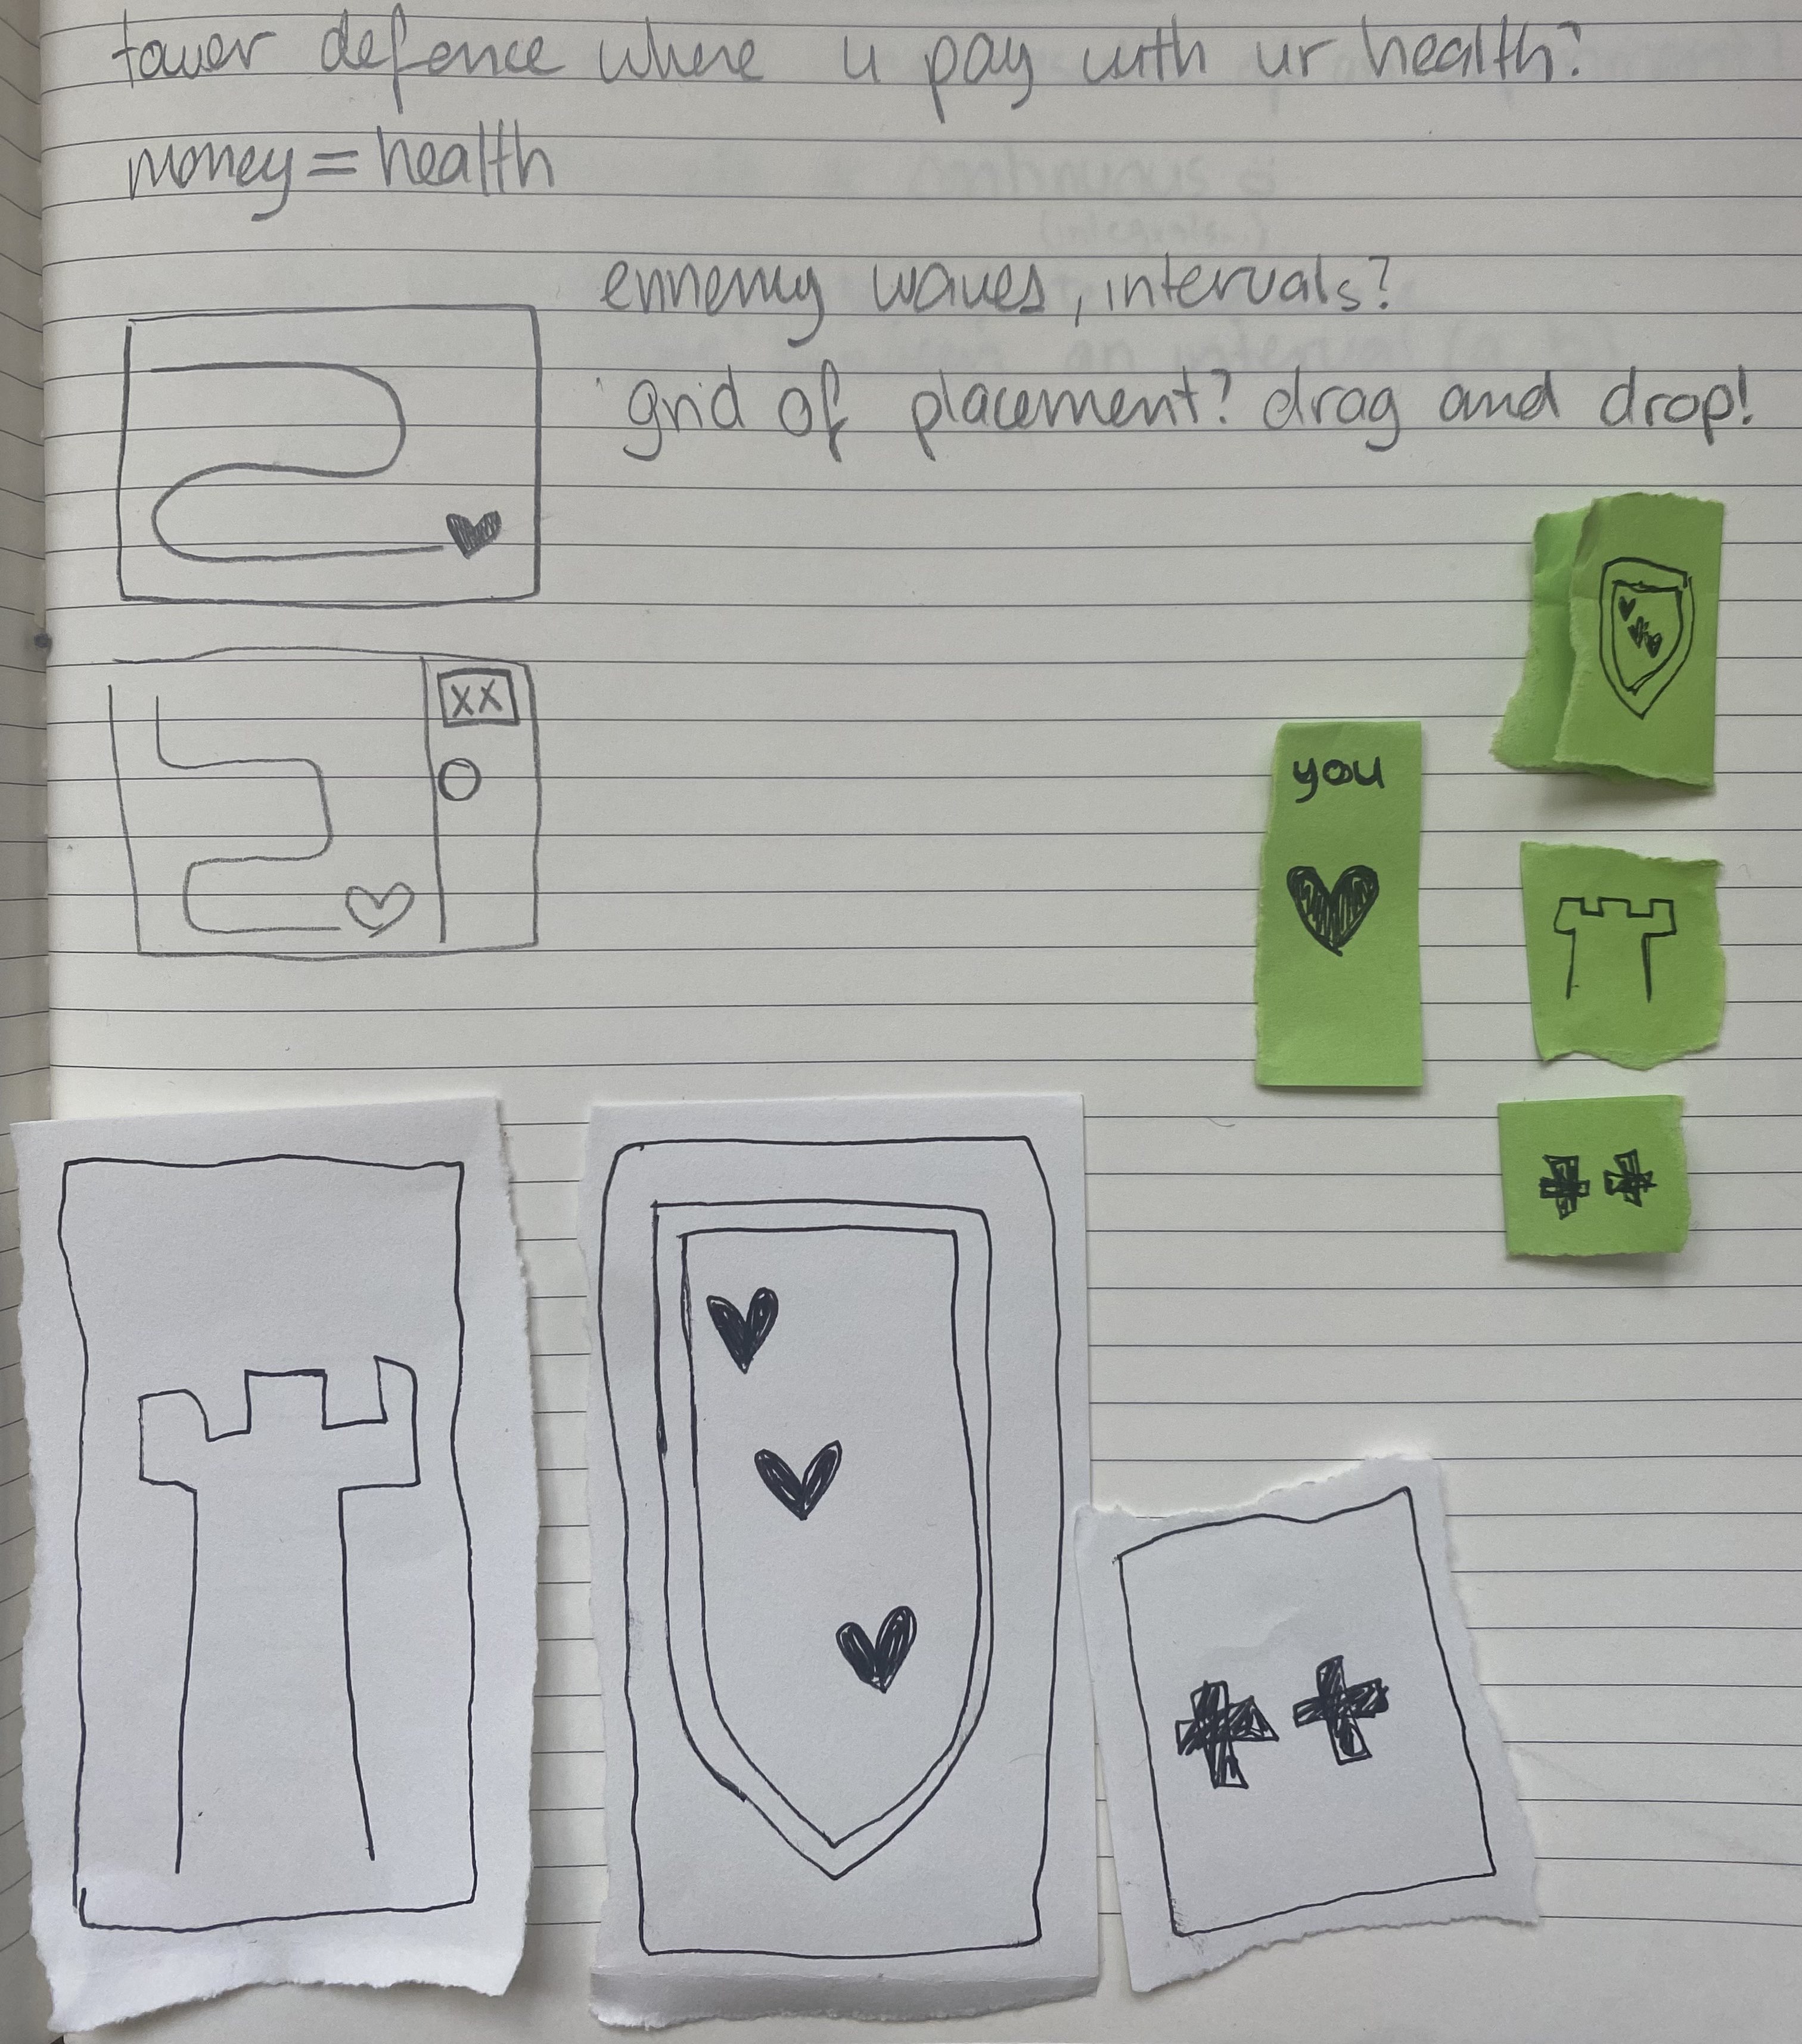 tower defence where u pay with ur health?
money = health
ennemy waves, intervals?
grid of placement? drag and drop!
XX
you